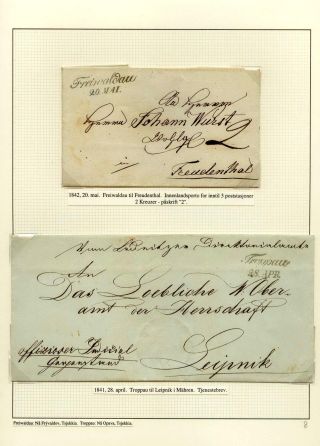 Freiwaldau
20. MAI.
Herrn
Johann Wurst
2
in
Freudenthal
1842, 20. mai. Freiwaldau til Freudenthal. Innenlandsporto for inntil 3 poststasjoner
2 Kreuzer - påskrift "2".
Troppau
28. APR.
An
Das Loebliche
amt der Herrschaft
Leipnik
1841, 28. april. Troppau til Leipnik i Mähren. Tjenestebrev.
Freiwaldau: Nå Frývaldov, Tsjekkia. Troppau: Nå Opava, Tsjekkia.
8